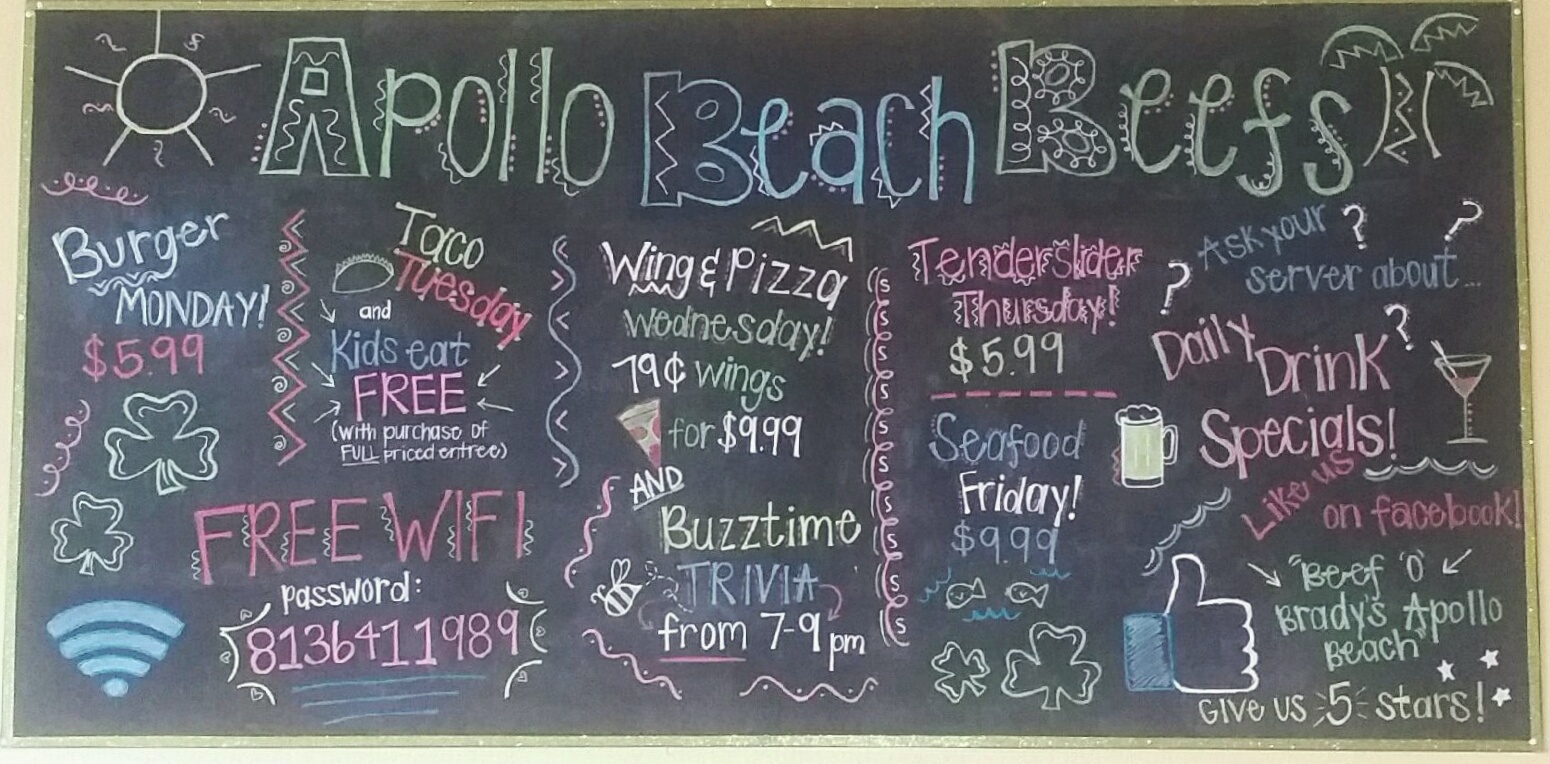 Apollo Beach Beefs
Burger
MONDAY!
$5.99
Taco
Tuesday
and
Kids eat
FREE
(with purchase of
FULL priced entree)
FREE WIFI
password:
8136411989
Wing & Pizza
Wednesday!
79¢ wings
for $9.99
AND
Buzztime
TRIVIA
from 7-9pm
Tenderslider
Thursday!
$5.99
Seafood
Friday!
$9.99
Ask your ? ?
server about...
?
Daily ?
Drink
Specials!
Like us
on facebook!
"Beef 'O'
Brady's Apollo
Beach"
Give us 5 stars!